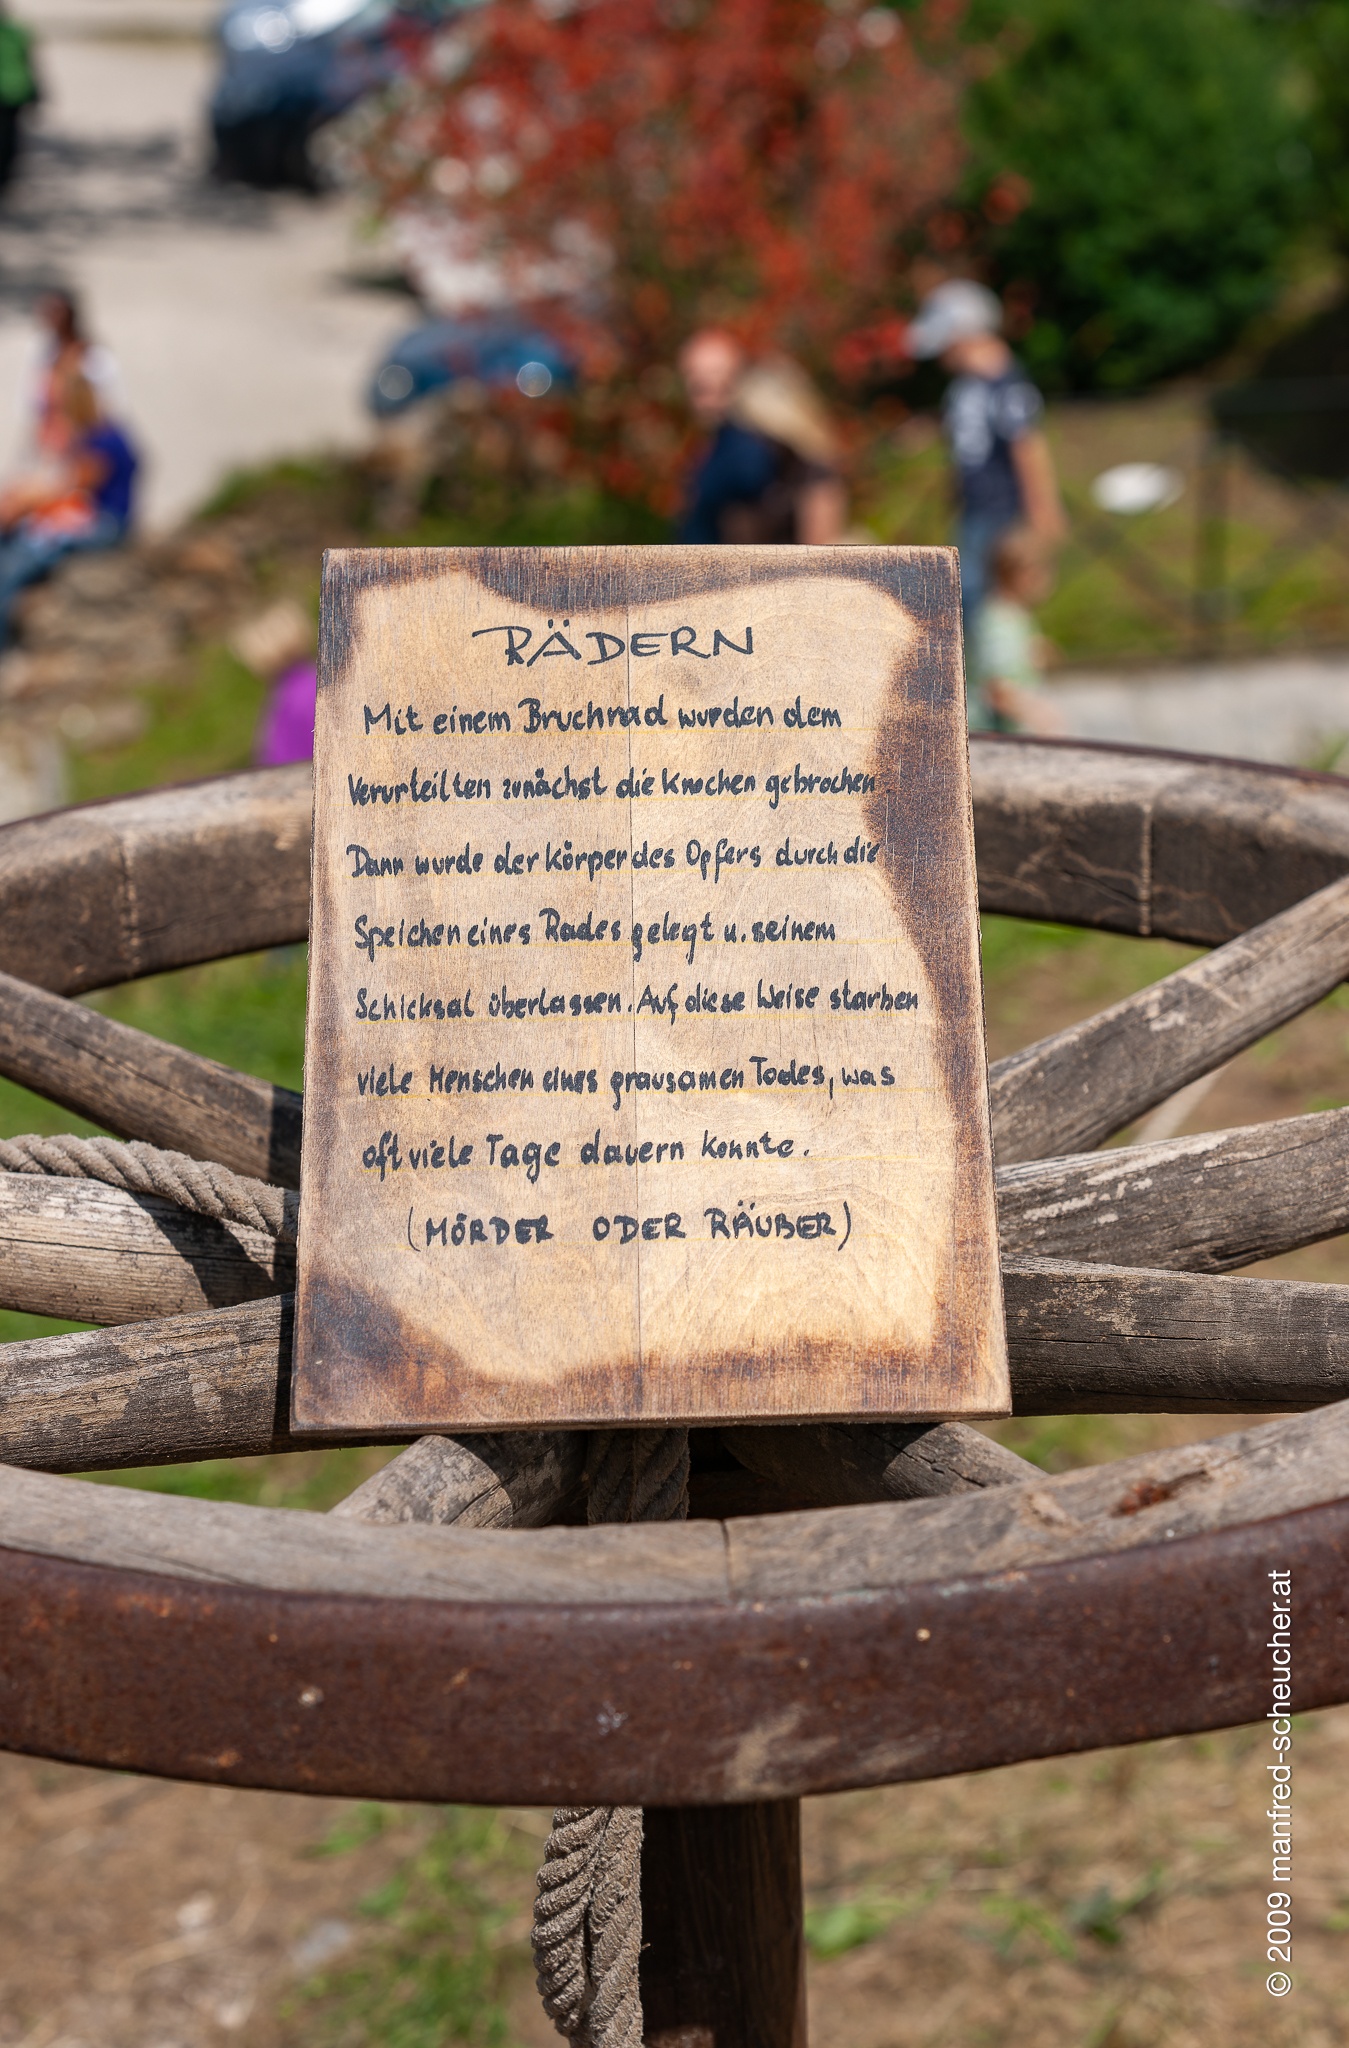 RÄDERN
Mit einem Bruchrad wurden dem
Verurteilten zunächst die Knochen gebrochen
Dann wurde der Körper des Opfers durch die
Speichen eines Rades gelegt u. seinem
Schicksal überlassen. Auf diese Weise starben
viele Menschen eines grausamen Todes, was
oft viele Tage dauern konnte.
(MÖRDER ODER RÄUBER)
© 2009 manfred-scheucher.at